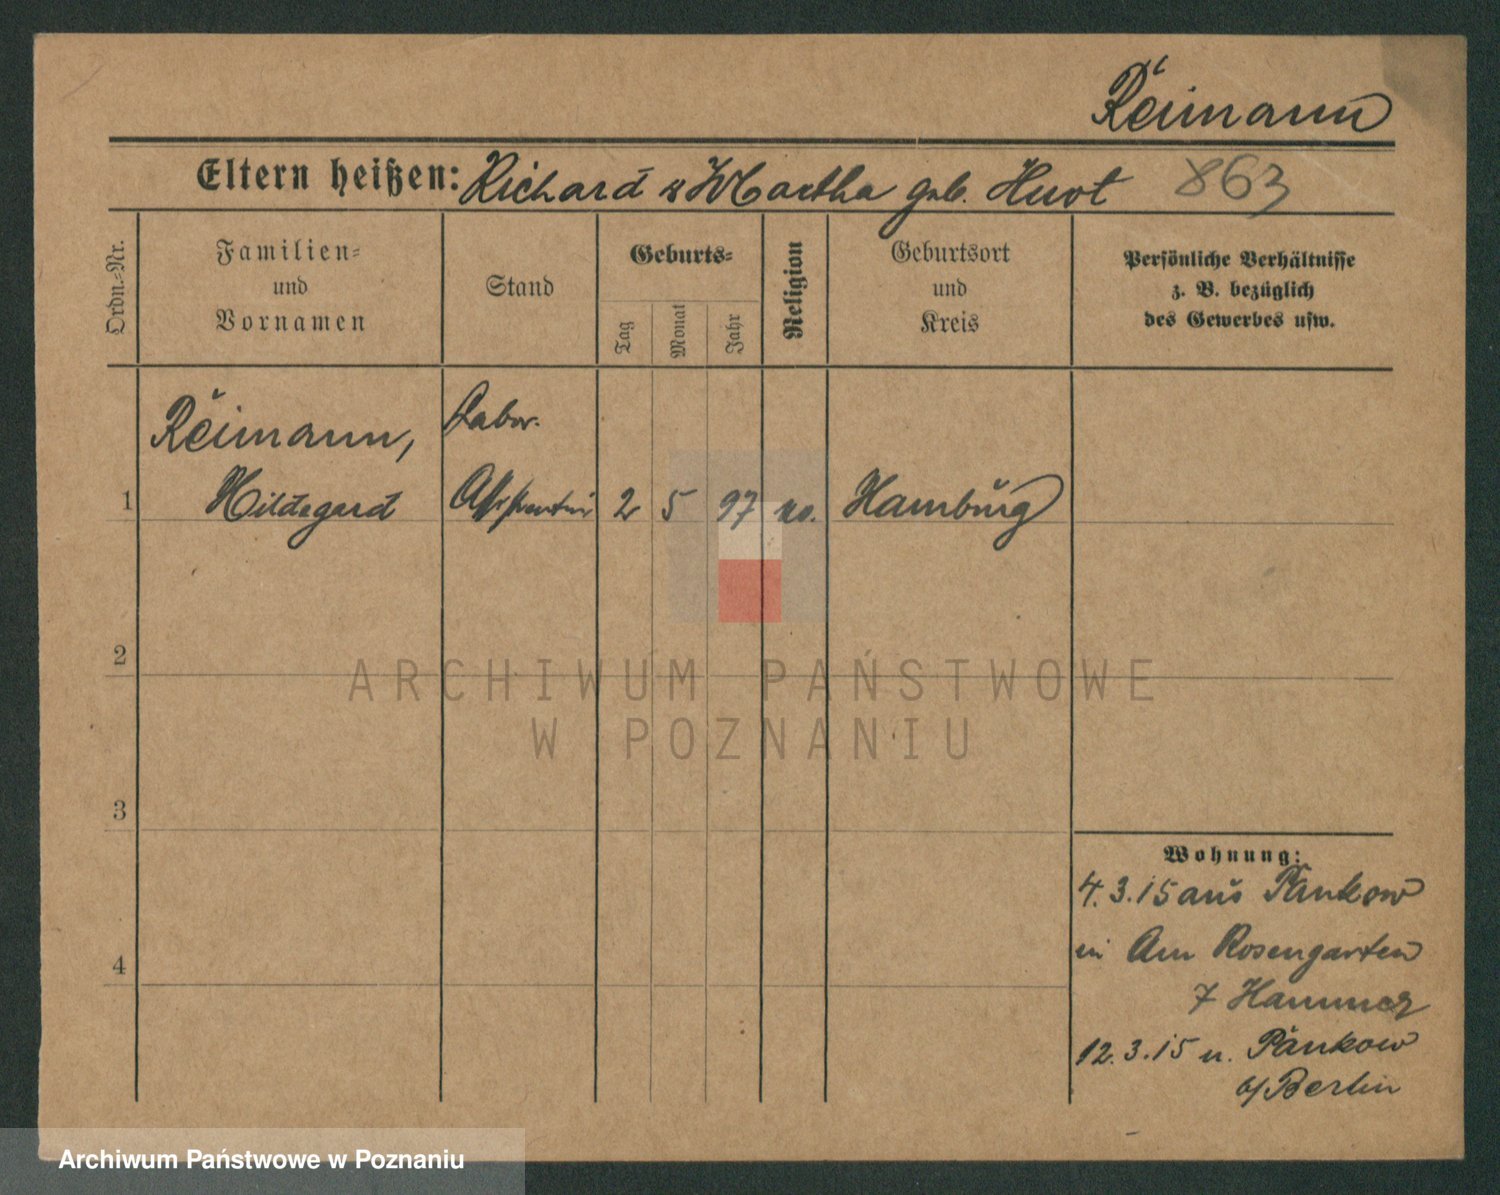 Reimann
Eltern heißen: Richard u Martha geb. Huvt 863
Ordn.-Nr.
Familien-
und
Vornamen
Stand
Geburts-
Tag
Monat
Jahr
Religion
Geburtsort
und
Kreis
Persönliche Verhältnisse
z. B. bezüglich
des Gewerbes usw.
Reimann, Labor.
1 Hildegard Assistentin 2 5 97 Hamburg
2
3
4
ARCHIWUM PAŃSTWOWE
W POZNANIU
Wohnung:
4.3.15 aus Pankow
in Am Rosengarten
7 Hammer
12.3.15 n. Pankow
b/Berlin
Archiwum Państwowe w Poznaniu